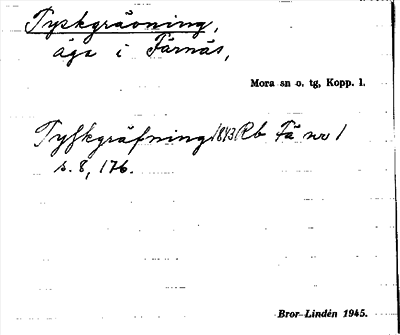 Tyskgrävning,
äga i Färnäs,
Mora sn o. tg, Kopp. l.
Tyskgräfning 1843 Rb Fä nr 1
s. 8, 176.
Bror Lindén 1945.